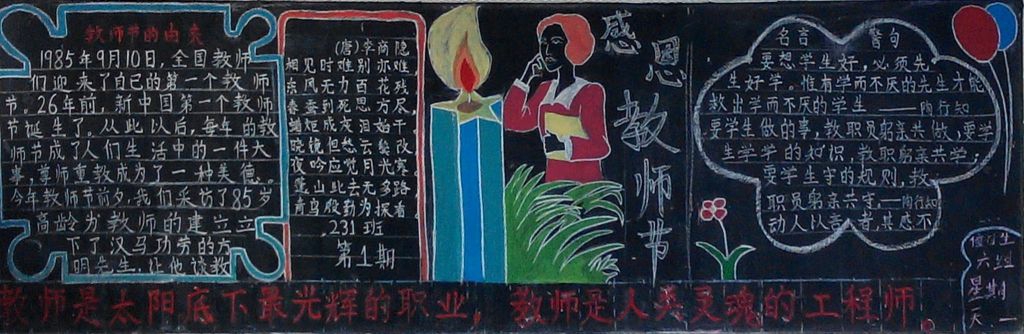 教师节的由来
1985年9月10日,全国教师
们迎来了自己的第一个教师
节。26年前,新中国第一个教师
节诞生了。从此以后,每年的教
师节成了人们生活中的一件大
事,尊师重教成为了一种美德。
今年教师节前夕,我们采访了85岁
高龄为教师的建立立
下了汉马功劳的方
明先生,让他谈教
(唐)李商隐
相见时难别亦难,
东风无力百花残
春蚕到死丝方尽
蜡炬成灰泪始干
晓镜但愁云鬓改
夜吟应觉月光寒
蓬山此去无多路
青鸟殷勤为探看
231班
第1期
感恩教师节
名言 警句
要想学生好,必须先
生好学。惟有学而不厌的先生才能
教出学而不厌的学生——陶行知
要学生做的事,教职员躬亲共做;要学
生学学的知识,教职员躬亲共学;
要学生守的规则,教
职员躬亲共守。——陶行知
动人以言者,其感不
值日生
六组
星期
天一
教师是太阳底下最光辉的职业,教师是人类灵魂的工程师。